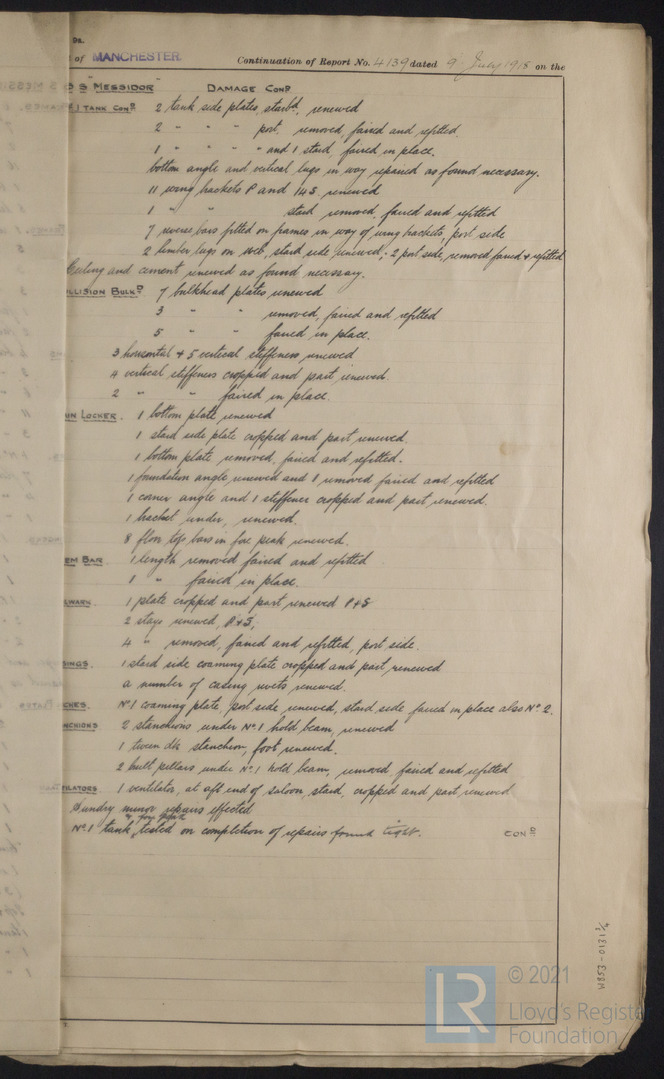 Ds.
of MANCHESTER Continuation of Report No. 4139 dated 9 July 1918 on the
S S MESSIDOR" DAMAGE CON D
1 TANK CON D 2 tank side plates, starb d, renewed
2 " " " port, removed, faired and refitted
1 " " " " and 1 starb d, faired in place.
bottom angle and vertical lugs in way repaired as found necessary.
11 wing brackets P and 14 S. renewed
1 " " starb d removed, faired and refitted
7 reverse bars fitted on frames in way of wing brackets, port side
2 limber lugs on web, starb d side, renewed, - 2 port side, removed faired & refitted
Ceiling and cement renewed as found necessary.
LLISION BULK D 7 bulkhead plates renewed
3 " " removed, faired and refitted
5 " " faired in place.
3 horizontal & 5 vertical stiffeners renewed
4 vertical stiffeners cropped and part renewed.
2 " " faired in place.
IN LOCKER. 1 bottom plate renewed
1 starb d side plate cropped and part renewed.
1 bottom plate removed, faired and refitted.
1 foundation angle renewed and 1 removed faired and refitted
1 corner angle and 1 stiffener cropped and part renewed.
1 bracket under, renewed.
8 floor top bars in fore peak renewed.
EM BAR 1 length removed faired and refitted
1 " faired in place.
LWARK. 1 plate cropped and part renewed P & S
2 stays renewed, P & S,
4 " removed, faired and refitted, port side.
SINGS. 1 starb d side coaming plate cropped and part renewed
a number of casing rivets renewed.
CHES. No 1 coaming plate, port side renewed, starb d side faired in place also No 2.
NCHIONS 2 stanchions under No 1 hold beam, renewed
1 tween dk stanchion, foot renewed.
2 built pillars under No 1 hold beam, removed faired and refitted
TILATORS 1 ventilator, at aft end of saloon, starb d, cropped and part renewed
Sundry minor repairs effected
No 1 tank, & fore peak tested on completion of repairs found tight. CON D
W853-0131 1/2
© 2021
LR
Lloyd's Register
Foundation